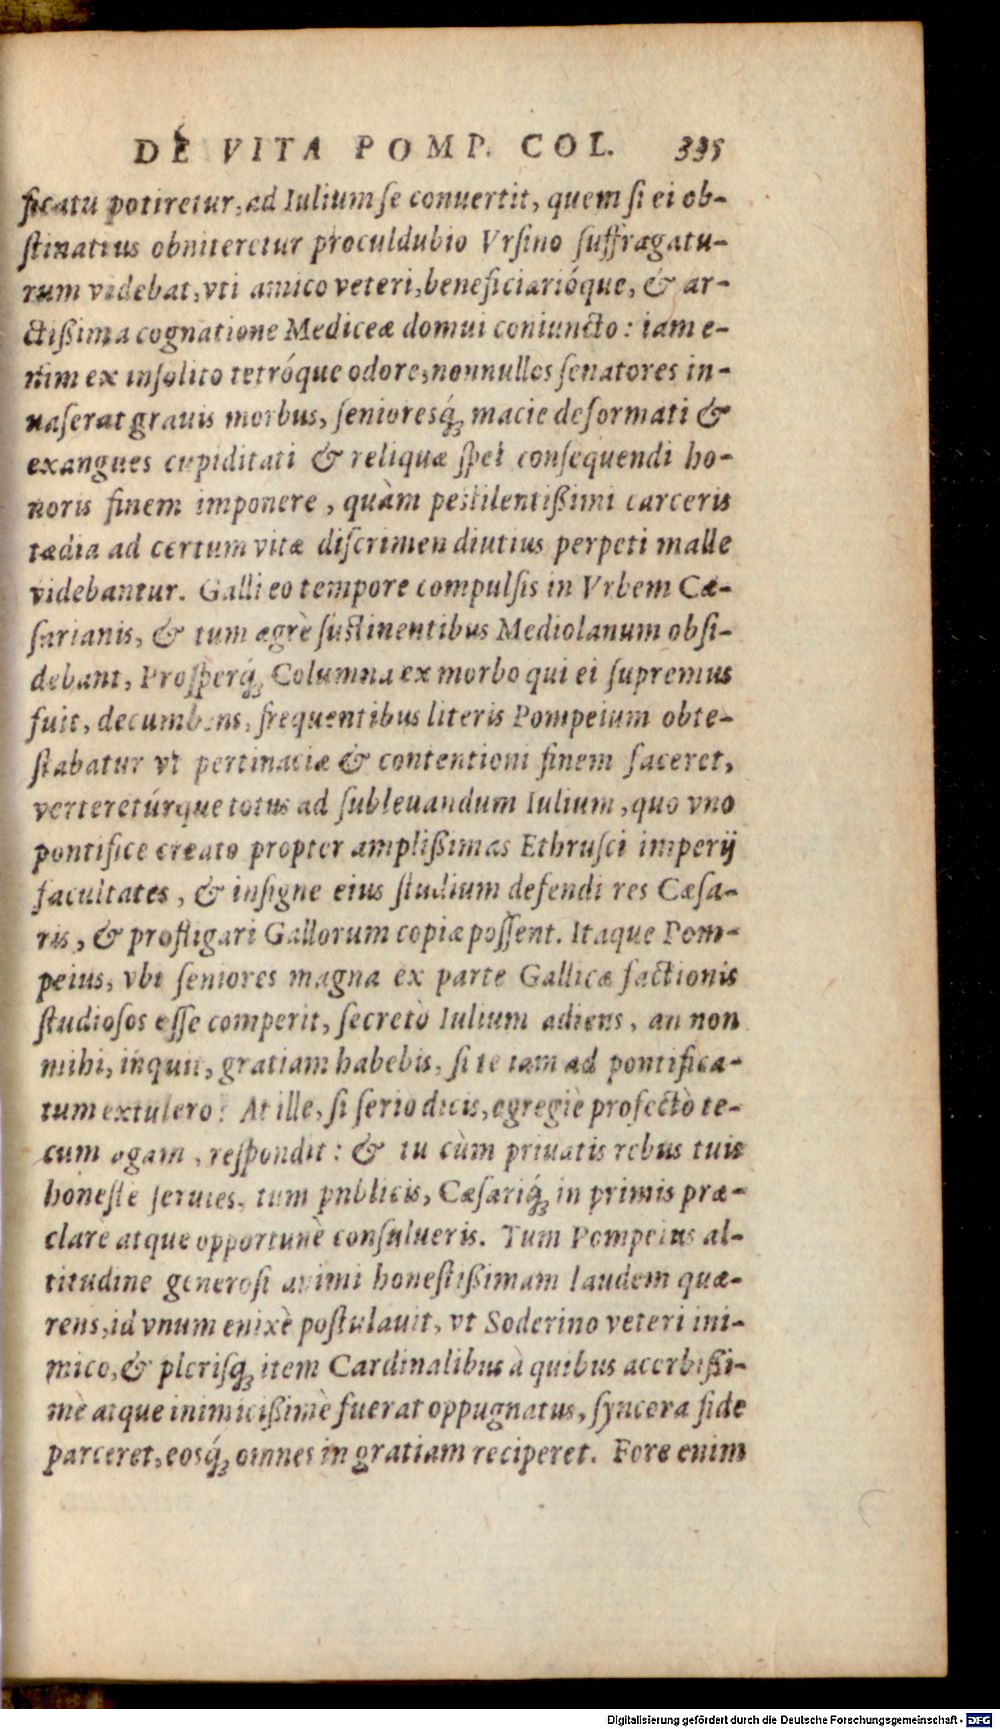 DE VITA POMP. COL. 335
ficatu potiretur, ad Iulium se conuertit, quem si ei ob-
stinatius obniteretur proculdubio Vrsino suffragatu-
rum videbat, vti amico veteri, beneficiarióque, & ar-
ctißima cognatione Mediceæ domui coniuncto: iam e-
nim ex insolito tetróque odore, nonnullos senatores in-
uaserat grauis morbus, senioresq́; macie deformati &
exangues cupiditati & reliquæ spei consequendi ho-
noris finem imponere, quàm pestilentißimi carceris
tædia ad certum vitæ discrimen diutius perpeti malle
videbantur. Galli eo tempore compulsis in Vrbem Cæ-
sarianis, & tum ægrè sustinentibus Mediolanum obsi-
debant, Prosperq́; Columna ex morbo qui ei supremus
fuit, decumbens, frequentibus literis Pompeium obte-
stabatur vt pertinaciæ & contentioni finem faceret,
verteretúrque totus ad subleuandum Iulium, quo vno
pontifice creato propter amplißimas Ethrusci imperij
facultates, & insigne eius studium defendi res Cæsa-
ris, & profligari Gallorum copiæ possent. Itaque Pom-
peius, vbi seniores magna ex parte Gallicæ factionis
studiosos esse comperit, secretò Iulium adiens, an non
mihi, inquit, gratiam habebis, si te iam ad pontifica-
tum extulero? At ille, si serio dicis, egregiè profectò te-
cum agam, respondit: & tu cùm priuatis rebus tuis
honeste seruies, tum publicis, Cæsariq́; in primis præ-
clarè atque opportunè consulueris. Tum Pompeius al-
titudine generosi animi honestißimam laudem quæ-
rens, id vnum enixè postulauit, vt Soderino veteri ini-
mico, & plerisq́; item Cardinalibus à quibus acerbißi-
mè atque inimicißimè fuerat oppugnatus, syncera fide
parceret, eosq́; omnes in gratiam reciperet. Fore enim
Digitalisierung gefördert durch die Deutsche Forschungsgemeinschaft - DFG